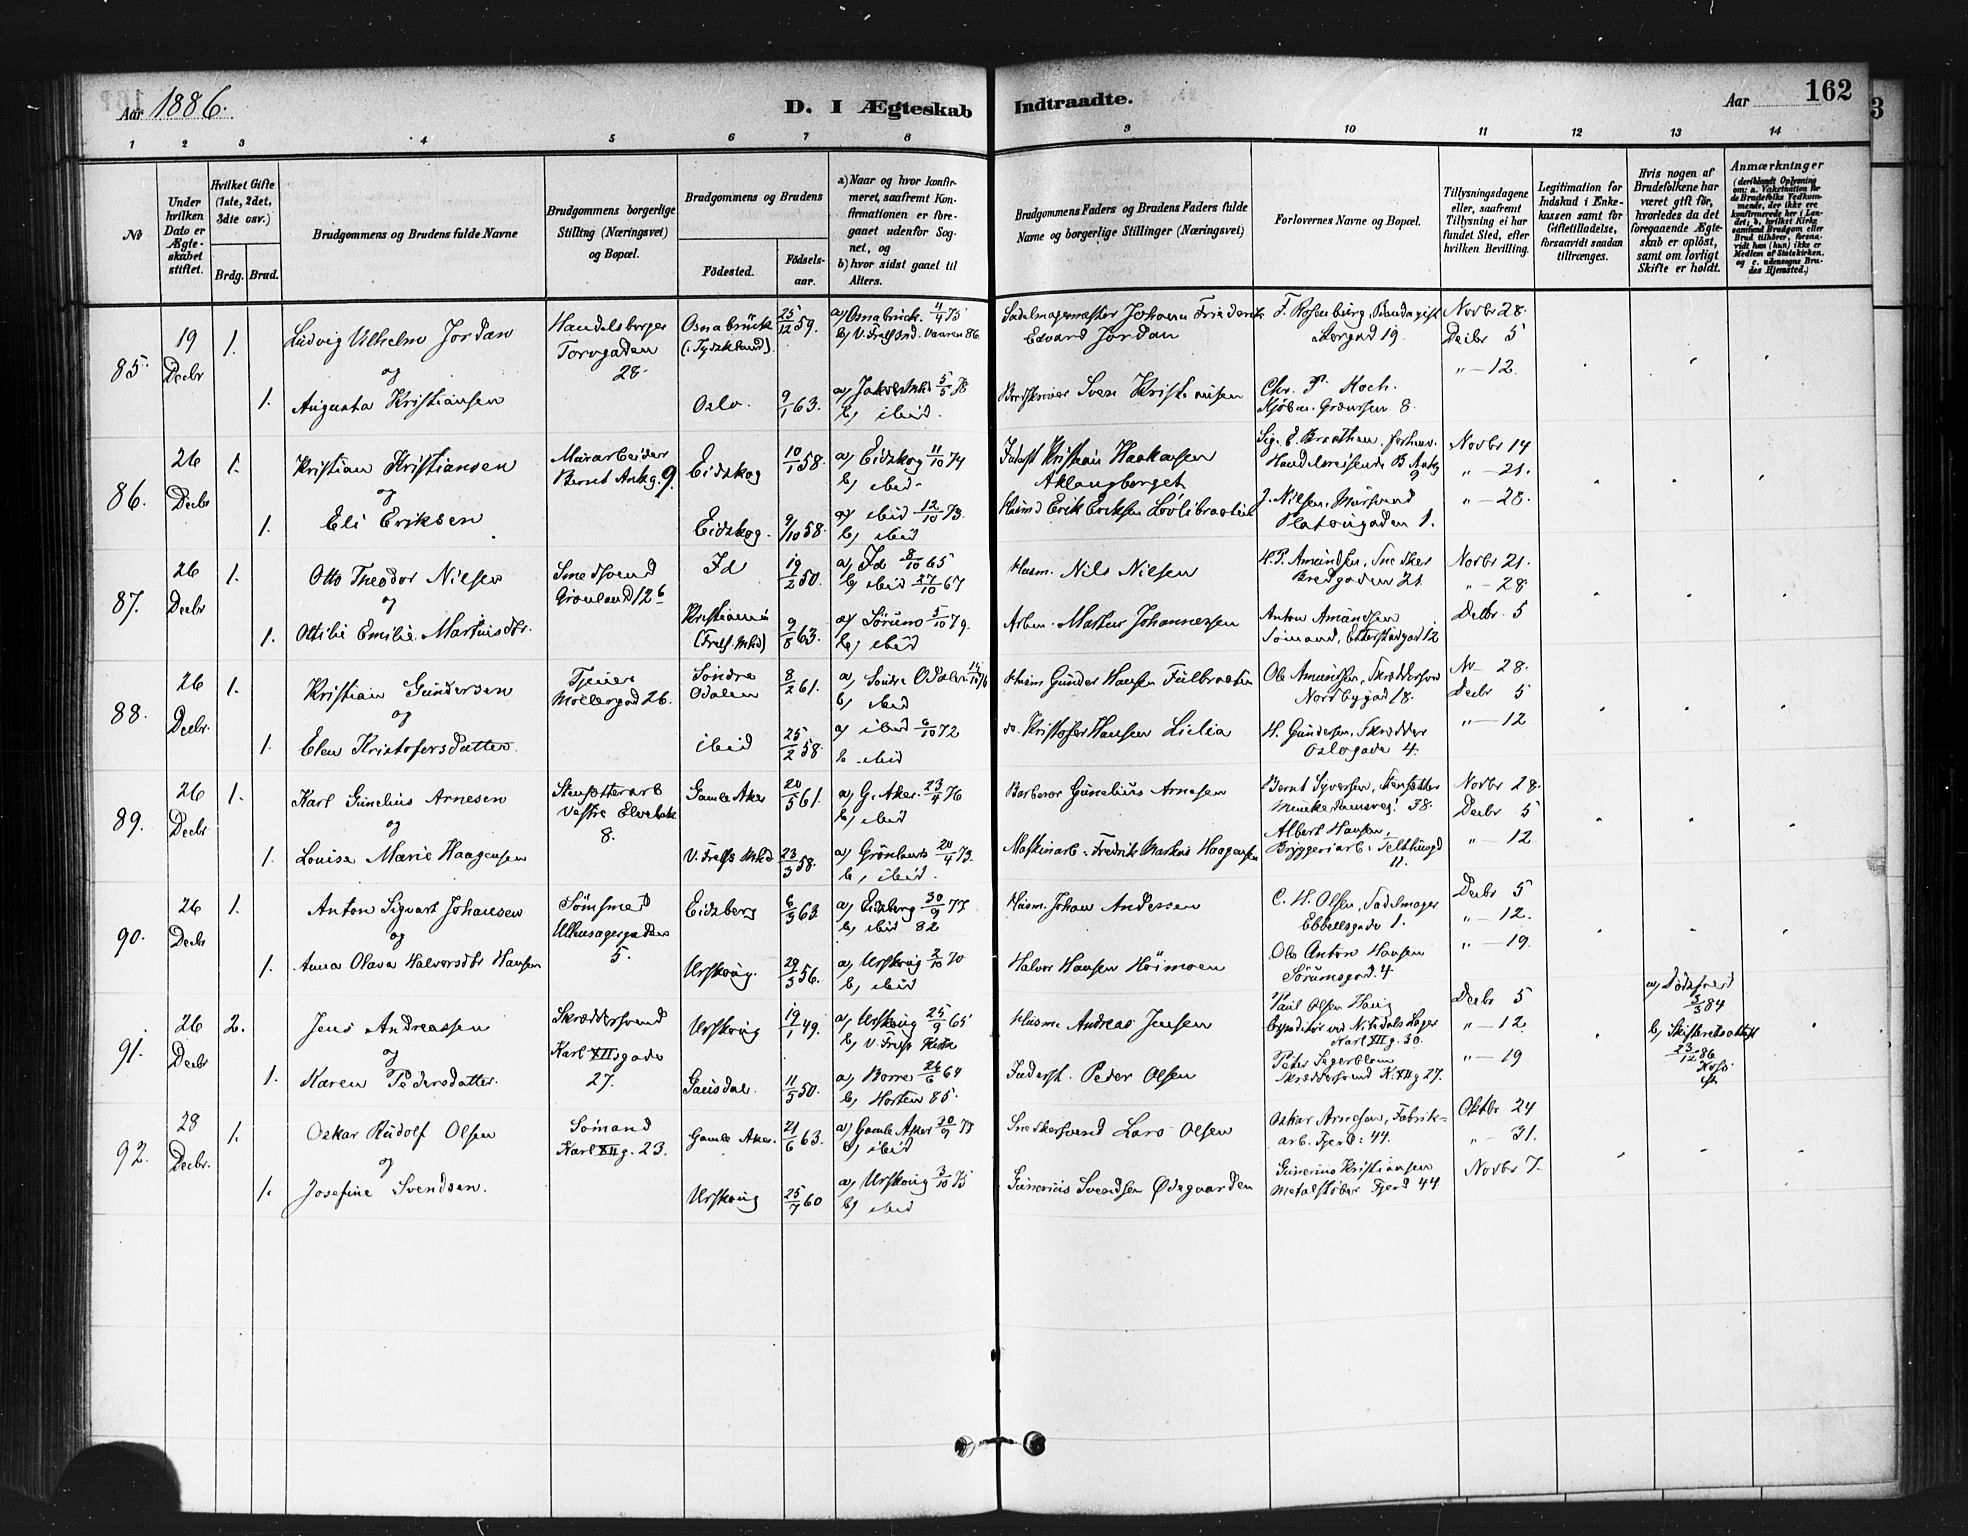 Aar 1886.
D. I Ægteskab Indtraadte.
Aar
162
3
1 2 3 4 5 6 7 8 9 10 11 12 13 14
№
Under hvilken Dato er Ægteskabet stiftet.
Hvilket Gifte (1ste, 2det, 3die osv.)
Brdg. Brud.
Brudgommens og Brudens fulde Navne
Brudgommens borgerlige Stilling (Næringsvei) og Bopæl.
Brudgommens og Brudens
Födested.
Födselsaar.
a) Naar og hvor konfirmeret, saafremt Konfirmationen er foregaaet udenfor Sognet, og
b) hvor sidst gaaet til Alters.
Brudgommens Faders og Brudens Faders fulde Navne og borgerlige Stillinger (Næringsvei)
Forlovernes Navne og Bopæl.
Tillysningsdagene eller, saafremt Tillysning ei har fundet Sted, efter hvilken Bevilling.
Legitimation for Indskud i Enkekassen samt for Giftetilladelse, forsaavidt saadan tiltrænges.
Hvis nogen af Brudefolkene har været gift før, hvorledes da det foregaaende Ægteskab er oplöst, samt om lovligt Skifte er holdt.
Anmærkninger
(deriblandt Oplysning om: a. Vakcination for de Brudefolks Vedkommende, der ikke ere konfirmerede her i Landet; b. hvilket Kirkesamfund Brudgom eller Brud tilhörer, forsaavidt han (hun) ikke er Medlem af Statskirken, og c. udensogns Brudes Hjemsted.)
85. 19 Decbr 1. Ludvig Vilhelm Jordan
Handelsborger Torvgaden 28.
Osnabrück (i Tydskland). 25/12 59.
a) Osnabrück. 4/4 75
b) V. Frelsers Vaaren 86.
Sadelmagermester Johann Friederik Edvard Jordan
F. Rosenberg, Bandagist Storgad 19.
Novbr 28.
Decbr 5
" 12.
og
1. Augusta Kristiansen
Oslo. 9/1 63.
a) Jakobs Mkd 5/5 78
b) ibid.
Sven Kristiansen
Chr. F. Koch.
Kjöbm. Grændsen 8.
86. 26 Decbr 1. Kristian Kristiansen
Murarbeider Bernt Ankg. 9.
Eidskog 10/1 58.
a) Eidskog 11/10 74
b) ibid.
Inderst Kristian Haakensen Aklangberget
Sig. E. Braathen, forhenv. Handelsreisende B Ankg 9
Novbr 14
" 21.
" 28.
og
1. Eli Eriksen
Eidskog. 9/10 58.
a) ibid 12/10 73.
b) ibid
Husmd Erik Eriksen Lövlibraaten
J. Nilsen, Mursvend
Platougaden 1.
87. 26 Decbr 1. Otto Theodor Nilsen
Smedsvend Grönland 12 b
Id 19/2 50.
a) Id 8/10 65
b) ibid 27/10 67
Husm. Nils Nilsen
H.P. Amundsen, Snedker Bredgaden 21.
Novbr 21.
" 28
Decbr. 5
og
1. Ottilie Emilie Martinsdtr.
Kristiania (Frels. Mkd) 9/8 63.
a) Sörum 5/10 79.
b) ibid
Arbm. Martin Johannessen
Anton Amundsen Sömand, Etterstadgad 12
88. 26 Decbr. 1. Kristian Gundersen
Tjener Möllergad 26.
Söndre Odalen 8/2 61.
a) Söndre Odalen 14/10 76
b) ibid
Husm Gunder Hansen Fulbraaten
Ole Amundsen, Skræddersvd Nordbygad 18.
Nv 28.
Decbr 5
" 12
og
1. Elen Kristofersdatter.
ibid 25/2 58
a) ibid 6/10 72
b ibid
do. Kristofer Hansen Lielia
H. Gundersen, Skrædder Oslogade 4.
89. 26 Decbr. 1. Karl Gunelius Arnesen
Stensætterarb Vestre Elvebak 8.
Gamle Aker 20/5 61.
a) G. Aker. 23/4 76
b) ibid
Barberer Gunelius Arnesen
Bernt Syversen, Stensætter Munkedamsvei 38.
Novbr 28.
Decbr 5
" 12
og
1. Louise Marie Haagensen
V. Frelsers Mkd 23/3 58.
a) Grönlands 20/4 73.
b, ibid.
Maskinarb. Fredrik Markus Haagensen
Albert Hansen, Bryggeriarb. Telthusgd 11.
90. 26 Decbr 1. Anton Sigvart Johansen
Sömsmed Ullensagergaden 5.
Eidsberg 6/3 63
a) Eidsberg 30/9 77
b, ibid 82
Husm. Johan Andersen
C. H. Olsen, Sadelmager Ebbellsgade 1.
Decbr 5
" 12.
" 19.
og
1. Anna Olava Halvorsdtr Hansen
Urskoug. 29/3 56.
a, Urskoug 2/10 70
b, ibid
Halvor Hansen Höimoen
Ole Anton Hansen Sörumsgad. 4
91. 26 Decbr 2. Jens Andreassen
Skræddersvend Karl XIIsgade 27.
Urskoug 19/1 49.
a, Urskoug 25/9 65
b, V. Frels Kirke
Husm. Andreas Jensen
Paul Olsen Haug
Expeditör ved Nitedals Lager Karl XII g. 30.
Decbr 5
" 12
" 19
a, Dödsfald 3/3 84
b, Skifteretsattest 23/12 86
og
1. Karen Pedersdatter.
Gausdal. 11/5 50.
a, Borre 26/6 64
b, Horten 85.
Inderst. Peder Olsen
Peter Segerblom
Skræddersvend K. XII g 27.
92. 28 Decbr. 1. Oskar Rudolf Olsen
Sömand Karl XII g. 23.
Gamle Aker. 21/6 63.
a) Gamle Aker 30/9 77
b, ibid
Snedkersvend Lars Olsen
Oskar Arnesen, Fabrikarb. Fjerd. 44.
Oktbr 24
" 31.
Novbr 7.
og
1. Josefine Svendsen.
Urskoug 25/7 60
a, Urskoug 3/10 75
b) ibid
Gunerius Svendsen Ødegaarden
Gunerius Kristiansen
Metalstöber Fjerd 44